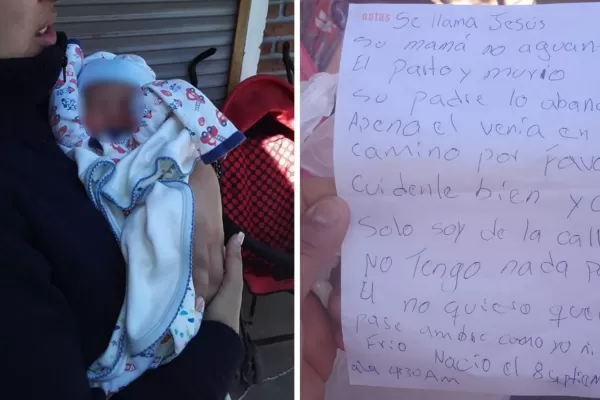 notas
Se llama Jesús
Su mamá no aguan
El parto y murio
Su padre lo aban
Apena el venia en
camino por Favo
Cuidenle bien y
Solo soy de la call
NO Tengo nada p
El no quiero que
pase ambre como yo ni
Frio Nacio el 8 septiem
ala 930 Am